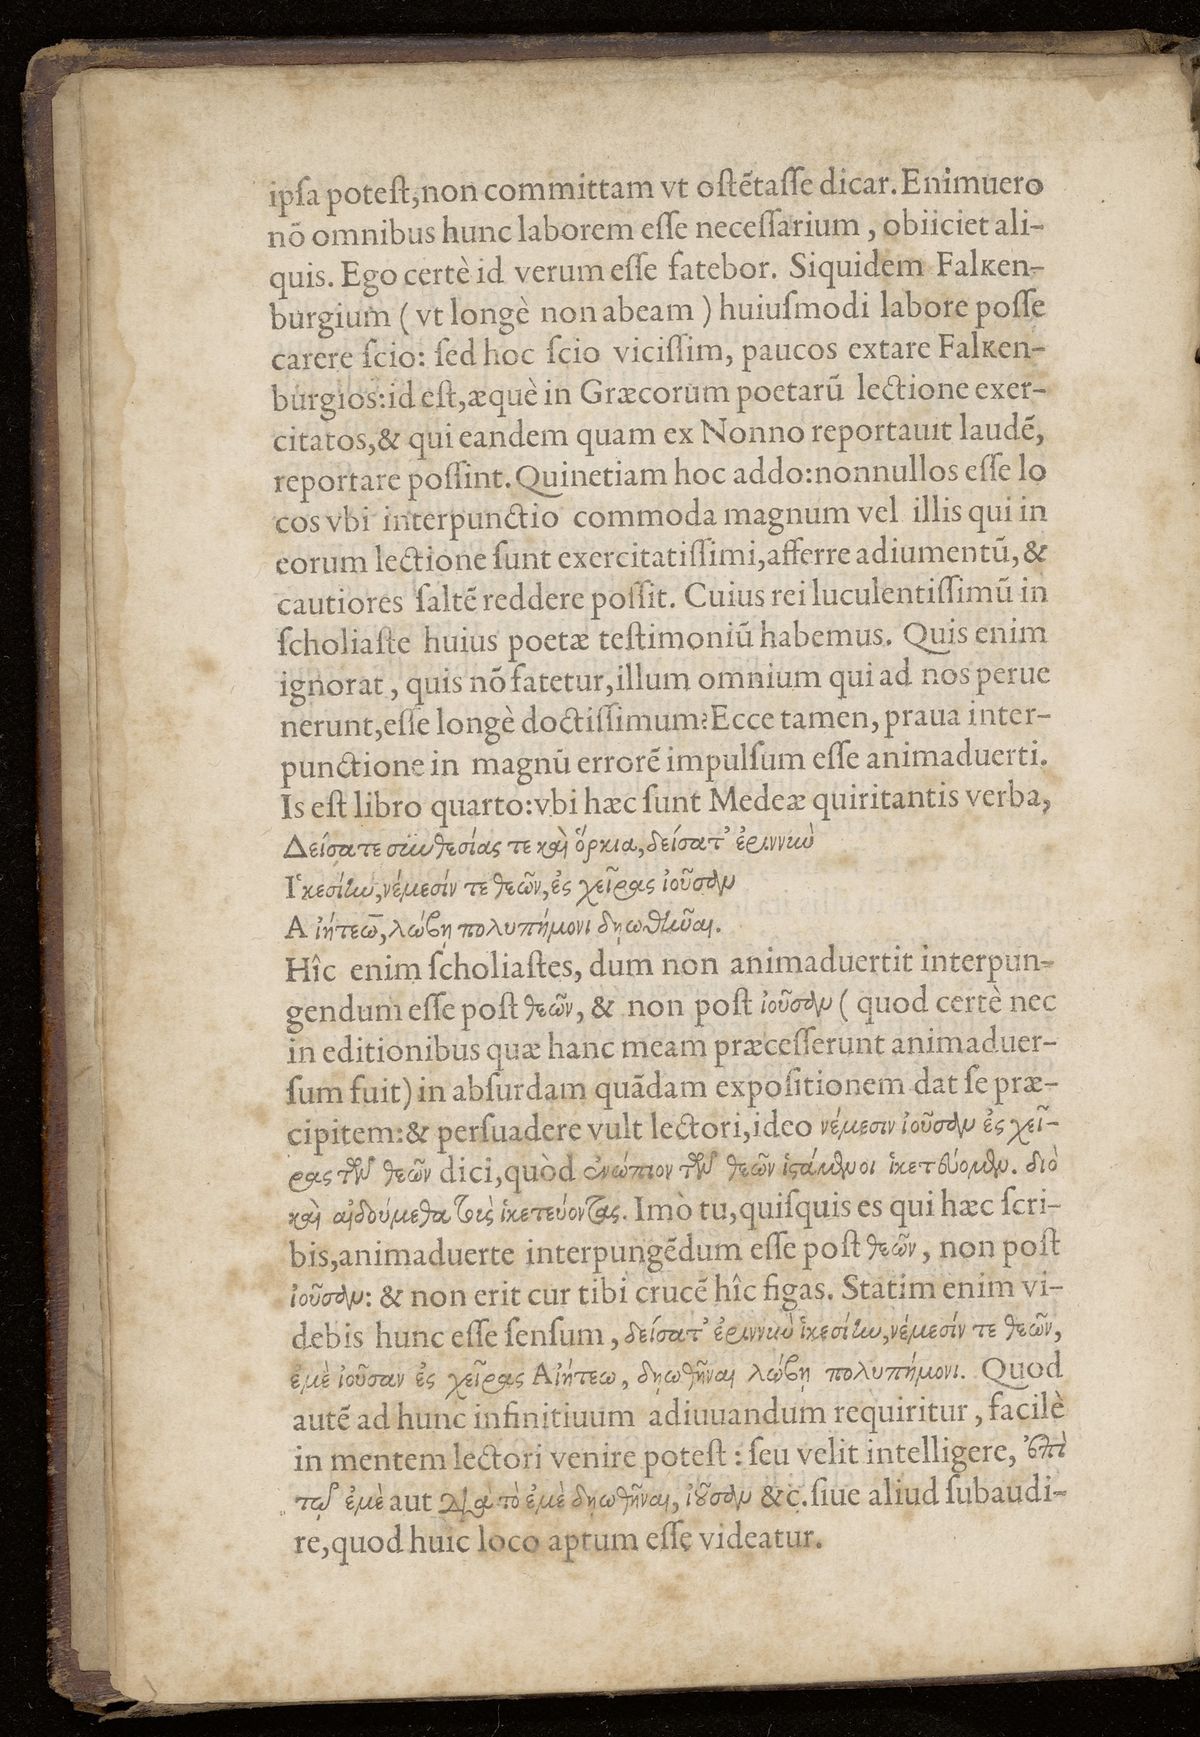 ipſa poteſt, non committam vt oſtẽtaſſe dicar. Enimuero
nõ omnibus hunc laborem eſſe neceſſarium, obiiciet ali-
quis. Ego certè id verum eſſe fatebor. Siquidem Falκen-
burgium (vt longè non abeam) huiuſmodi labore poſſe
carere ſcio: ſed hoc ſcio viciſſim, paucos extare Falκen-
burgios: id eſt, æquè in Græcorum poetarũ lectione exer-
citatos, & qui eandem quam ex Nonno reportauit laudẽ,
reportare poſſint. Quinetiam hoc addo: nonnullos eſſe lo
cos vbi interpunctio commoda magnum vel illis qui in
eorum lectione ſunt exercitatiſſimi, afferre adiumentũ, &
cautiores ſaltẽ reddere poſſit. Cuius rei luculentiſſimũ in
ſcholiaſte huius poetæ teſtimoniũ habemus. Quis enim
ignorat, quis nõ fatetur, illum omnium qui ad nos perue
nerunt, eſſe longè doctiſſimum? Ecce tamen, praua inter-
punctione in magnũ errorẽ impulſum eſſe animaduerti.
Is eſt libro quarto: vbi hæc ſunt Medeæ quiritantis verba,
Δείσατε συνθεσίας τε καὶ ὅρκια, δείσατ' ἐριννιὺ
Ἱκεσίην, νέμεσίν τε θεῶν, ἐς χεῖρας ἰοῦσαν
Αἰήτεω, λώβῃ πολυπήμονι δῃωθῆναι.
Hîc enim ſcholiaſtes, dum non animaduertit interpun-
gendum eſſe poſt θεῶν, & non poſt ἰοῦσαν (quod certè nec
in editionibus quæ hanc meam præceſſerunt animaduer-
ſum fuit) in abſurdam quãdam expoſitionem dat ſe præ-
cipitem: & perſuadere vult lectori, ideo νέμεσιν ἰοῦσαν ἐς χεῖ-
ρας τῶν θεῶν dici, quòd ἐνώπιον τῶν θεῶν ἱστάμενοι ἱκετεύομεν. διὸ
καὶ αἰδούμεθα τοὺς ἱκετεύοντας. Imò tu, quiſquis es qui hæc ſcri-
bis, animaduerte interpungẽdum eſſe poſt θεῶν, non poſt
ἰοῦσαν: & non erit cur tibi crucẽ hîc figas. Statim enim vi-
debis hunc eſſe ſenſum, δείσατ' ἐριννιὺ ἱκεσίην, νέμεσίν τε θεῶν,
ἐμὲ ἰοῦσαν ἐς χεῖρας Αἰήτεω, δῃωθῆναι λώβῃ πολυπήμονι. Quod
autẽ ad hunc infinitiuum adiuuandum requiritur, facilè
in mentem lectori venire poteſt: ſeu velit intelligere, ἐπὶ
τῷ ἐμὲ aut διὰ τὸ ἐμὲ δῃωθῆναι, ἰοῦσαν &c. ſiue aliud ſubaudi-
re, quod huic loco aptum eſſe videatur.